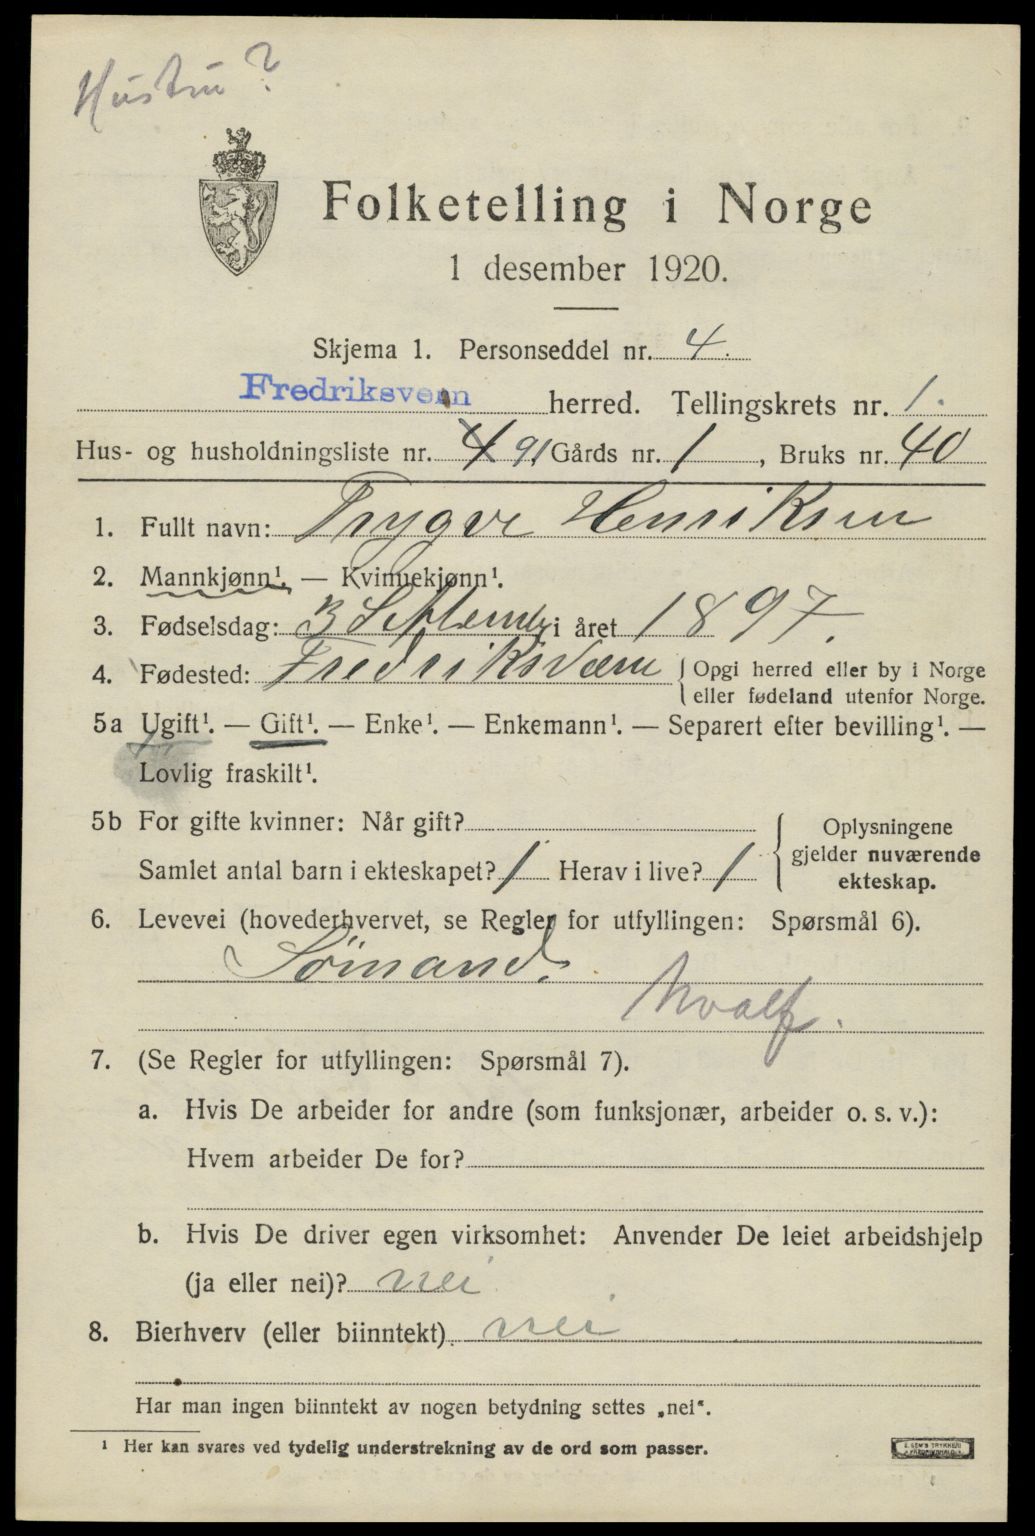 Hustru?
Folketelling i Norge
1 desember 1920.
Skjema 1. Personseddel nr. 4.
Fredriksvern herred. Tellingskrets nr. 1.
Hus- og husholdningsliste nr. 4 91 Gårds nr. 1, Bruks nr. 40
1. Fullt navn: Trygve Henriksen
2. Mannkjønn¹. — Kvinnekjønn¹.
3. Fødselsdag: 3 Septemb i året 1897.
4. Fødested: Fredriksværn { Opgi herred eller by i Norge
eller fødeland utenfor Norge.
5a Ugift¹. — Gift¹. — Enke¹. — Enkemann¹. — Separert efter bevilling¹. —
Lovlig fraskilt¹.
5b For gifte kvinner: Når gift?
Samlet antal barn i ekteskapet? 1 Herav i live? 1
Oplysningene
gjelder nuværende
ekteskap.
6. Levevei (hovederhvervet, se Regler for utfyllingen: Spørsmål 6).
Sømand.
7. (Se Regler for utfyllingen: Spørsmål 7).
a. Hvis De arbeider for andre (som funksjonær, arbeider o. s. v.):
Hvem arbeider De for?
b. Hvis De driver egen virksomhet: Anvender De leiet arbeidshjelp
(ja eller nei)? nei
8. Bierhverv (eller biinntekt) nei
Har man ingen biinntekt av nogen betydning settes „nei“.
¹ Her kan svares ved tydelig understrekning av de ord som passer.